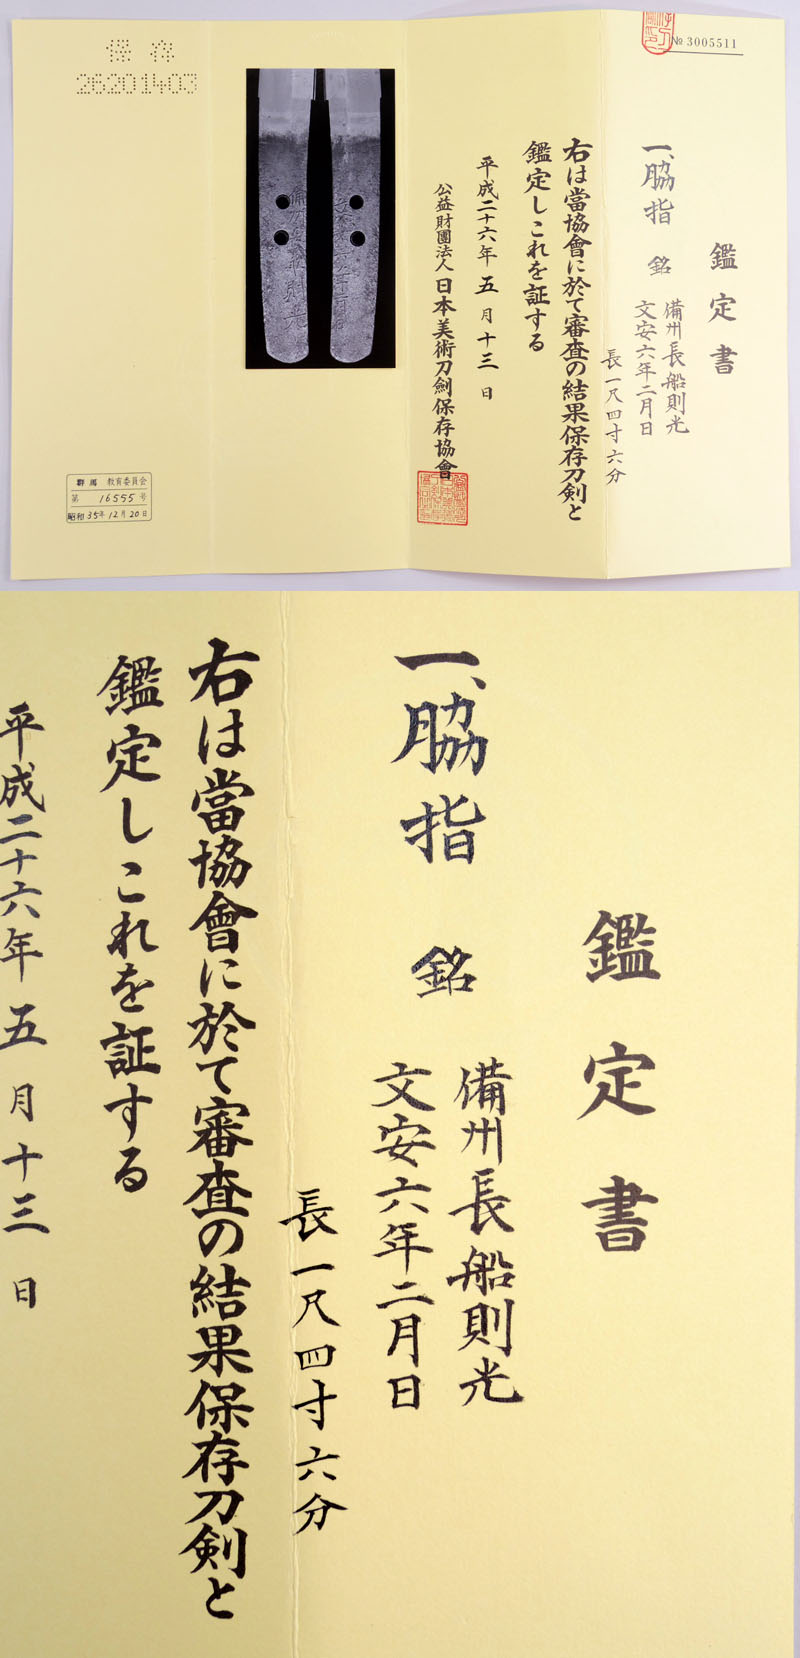 № 3005511
鑑定書
一、脇指 銘 備州長船則光
文安六年二月日
長一尺四寸六分
右は當協會に於て審査の結果保存刀剣と
鑑定しこれを証する
平成二十六年五月十三日
公益財團法人日本美術刀劍保存協會
保存
26201403
群馬 教育委員会
第 16555 号
昭和35年12月20日
鑑定書
一、脇指 銘 備州長船則光
文安六年二月日
長一尺四寸六分
右は當協會に於て審査の結果保存刀剣と
鑑定しこれを証する
平成二十六年五月十三日